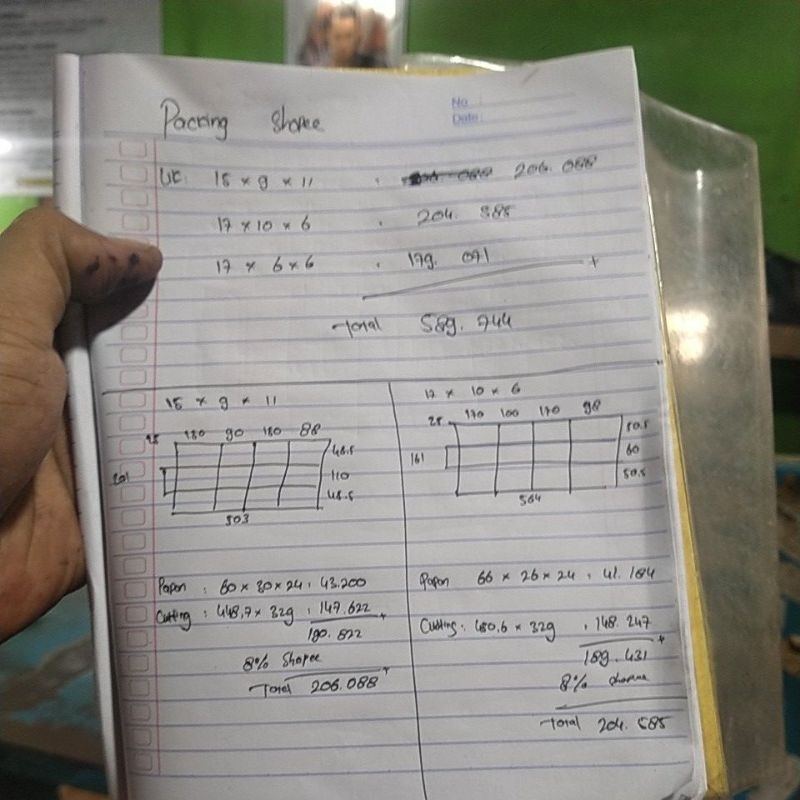 No :
Date :
Packing Shopee
UK: 18 x 9 x 11 . 206.088
17 x 10 x 6 . 204.585
17 x 6 x 6 . 179.071 +
Total 589.744
18 x 9 x 11
180 90 180 88
48.5
201 110
48.5
503
Papan : 60 x 30 x 24 . 43.200
Cutting : 448,7 x 329 . 147.622 +
190.822
8% Shopee +
Total 206.088
17 x 10 x 6
25 170 100 170 98
50.5
161 60
50.5
564
Papan 66 x 26 x 24 . 41.184
Cutting : 450.6 x 329 . 148.247 +
189.431
8% Shopee
Total 204.585